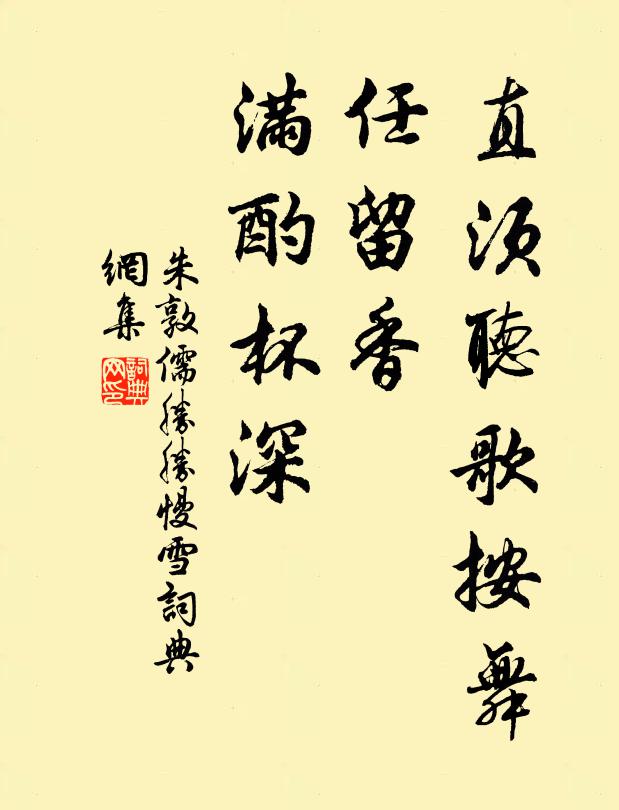 直須聽歌按舞
任留香
滿酌杯深
朱敦儒勝勝慢雪詞典
網集
詞典
网印